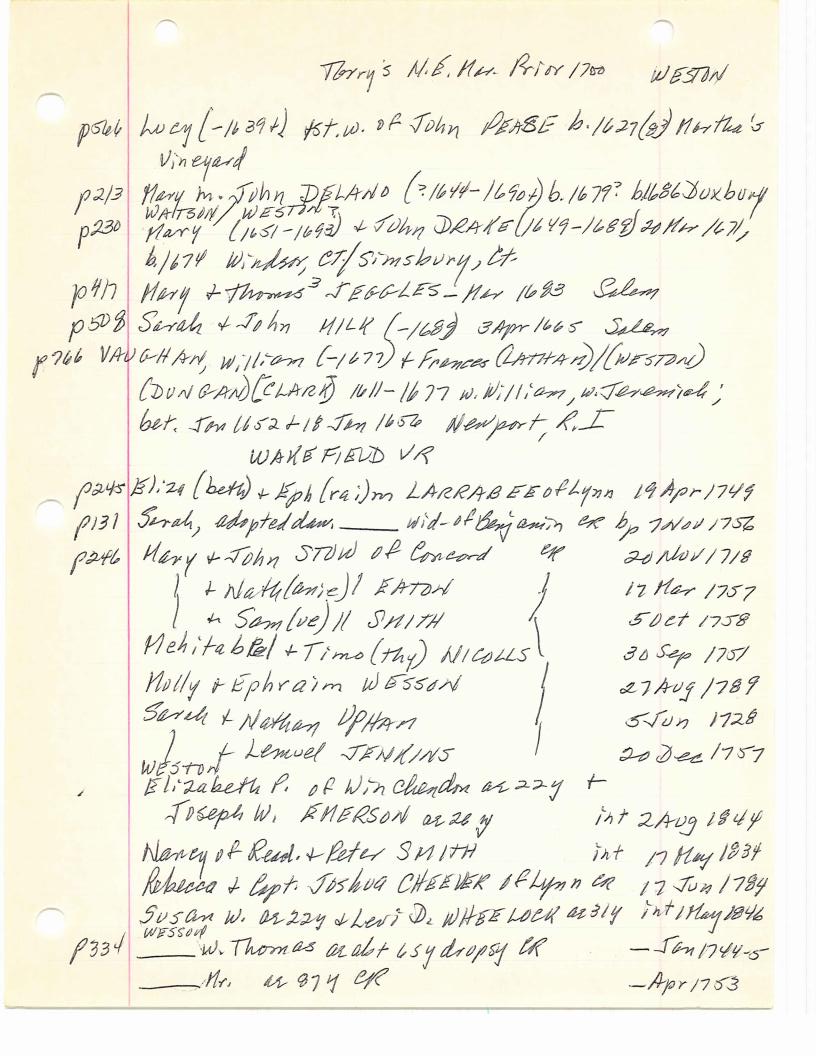 Torry's N.E. Mar. Prior 1700 WESTON
p566 Lucy (-1639+) 1st. w. of John PEASE b. 1627(83) Martha's
Vineyard
p213 Mary m. John DELANO (?1644-1690+) b. 1679? b1686 Duxbury
WATSON/WESTON?
p230 Mary (1651-1693) + John DRAKE (1649-1688) 20 Mar 1671,
b. 1674 Windsor, CT./Simsbury, Ct.
p417 Mary + Thomas³ JEGGLES - Mar 1683 Salem
p508 Sarah + John MILK (-1689) 3 Apr 1665 Salem
p766 VAUGHAN, William (-1677) + Frances (LATHAM)/(WESTON)
(DUNGAN)[CLARK] 1611-1677 w. William, w. Jeremiah;
bet. Jan 1652 + 18 Jan 1656 Newport, R.I
WAKEFIELD VR
p245 Eliza(beth) + Eph(rai)m LARRABEE of Lynn 19 Apr 1749
p131 Sarah, adopted dau. ____ wid. of Benjamin CR bp 7 Nov 1756
p246 Mary + John STOW of Concord CR 20 Nov 1718
} + Nath(anie)l EATON } 17 Mar 1757
+ Sam(ue)ll SMITH 5 Oct 1758
Mehitabel + Timo(thy) NICOLLS 30 Sep 1751
Molly + Ephraim WESSON 27 Aug 1789
Sarah + Nathan UPHAM 5 Jun 1728
} + Lemuel JENKINS 20 Dec 1757
WESTON
Elizabeth P. of Winchendon ae 22y +
Joseph W. EMERSON ae 26 y int 2 Aug 1844
Nancy of Read. + Peter SMITH int 17 May 1834
Rebecca + Capt. Joshua CHEEVER of Lynn CR 17 Jun 1784
Susan W. ae 22y + Levi D. WHEELOCK ae 31y int 1 May 1846
WESSON
p334 ____ w. Thomas ae abt 65y dropsy CR - Jan 1744-5
____ Mr. ae 87y CR - Apr 1753